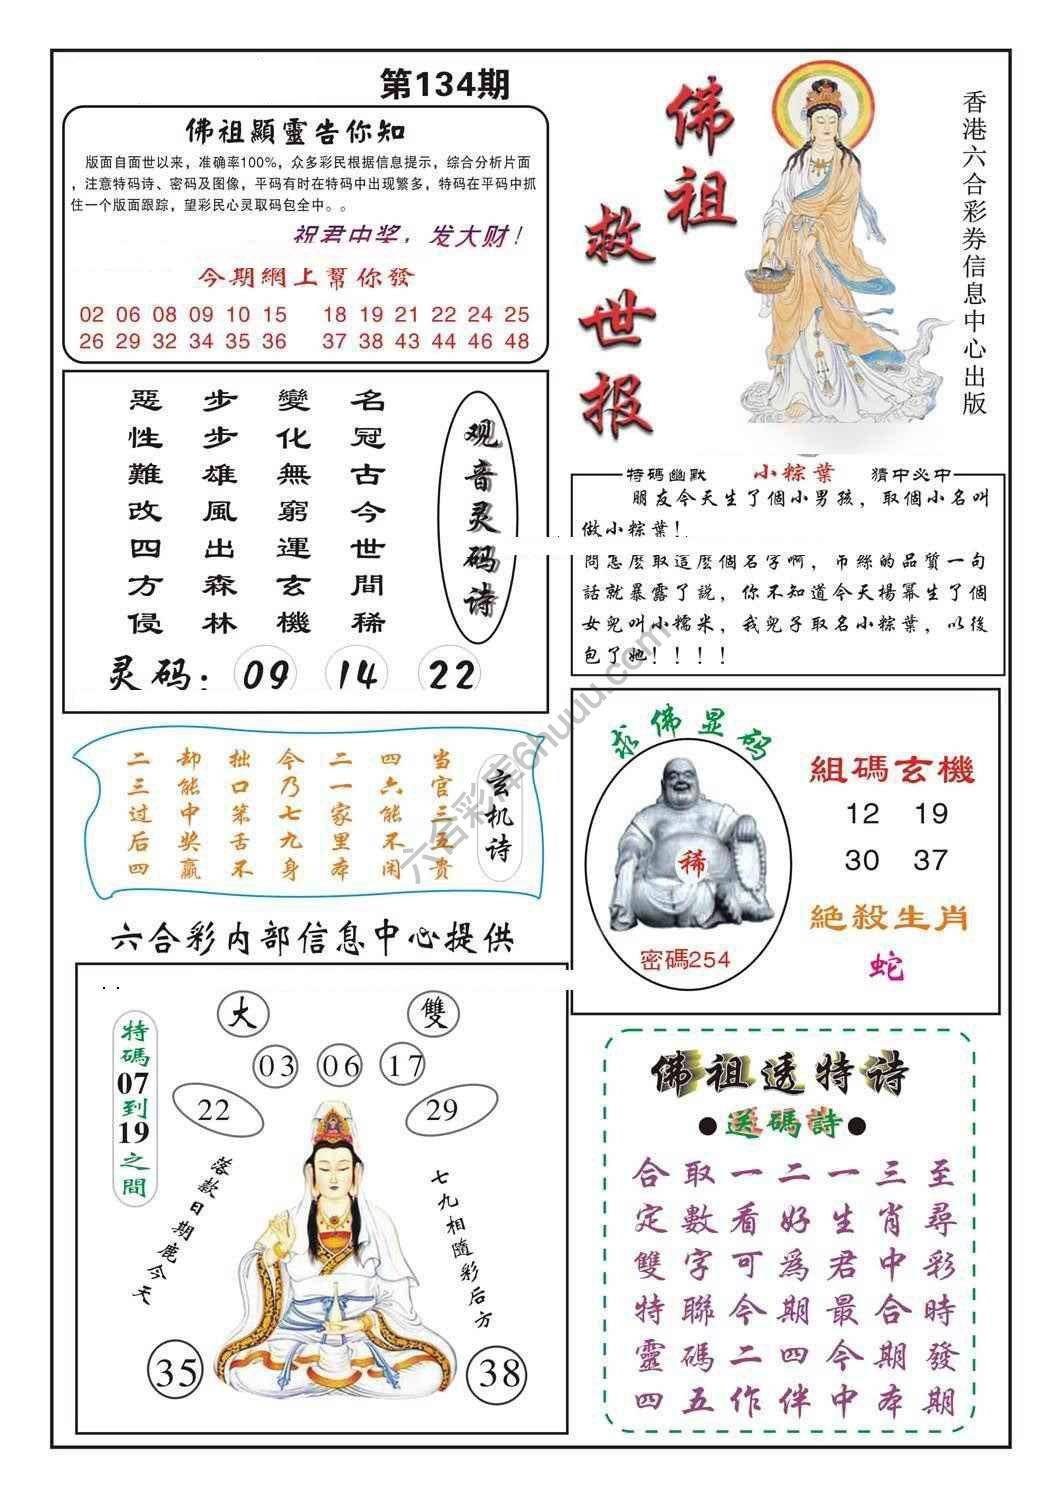 第134期
佛祖顯靈告你知
版面自面世以来，准确率100%，众多彩民根据信息提示，综合分析片面
，注意特码诗、密码及图像，平码有时在特码中出现繁多，特码在平码中抓
住一个版面跟踪，望彩民心灵取码包全中。。
祝君中奖，发大财！
今期網上幫你發
02 06 08 09 10 15 18 19 21 22 24 25
26 29 32 34 35 36 37 38 43 44 46 48
佛祖
救世报
香港六合彩券信息中心出版
观音灵码诗
名冠古今世間稀
變化無窮運玄機
步步雄風出森林
惡性難改四方侵
灵码：09 14 22
特碼幽默 小粽葉 猜中必中
朋友今天生了個小男孩，取個小名叫
做小粽葉！
問怎麽取這麽個名字啊，吊絲的品質一句
話就暴露了説，你不知道今天楊冪生了個
女兒叫小糯米，我兒子取名小粽葉，以後
包了她！！！！
玄机诗
当官三五贵
四六能不闲
二一家里本
今乃七九身
拙口笨舌不
却能中奖赢
二三过后四
求佛显码
稀
密碼254
組碼玄機
12 19
30 37
絕殺生肖
蛇
六合彩内部信息中心提供
大 雙
特碼07到19之間
03 06 17
22 29
落款日期鹿今天
七九相隨彩后方
35 38
佛祖透特诗
●送碼詩●
合取一二一三至
定數看好生肖尋
雙字可為君中彩
特聯今期最合時
靈碼二四今期發
四五作伴中本期
六合彩库6huuu.com